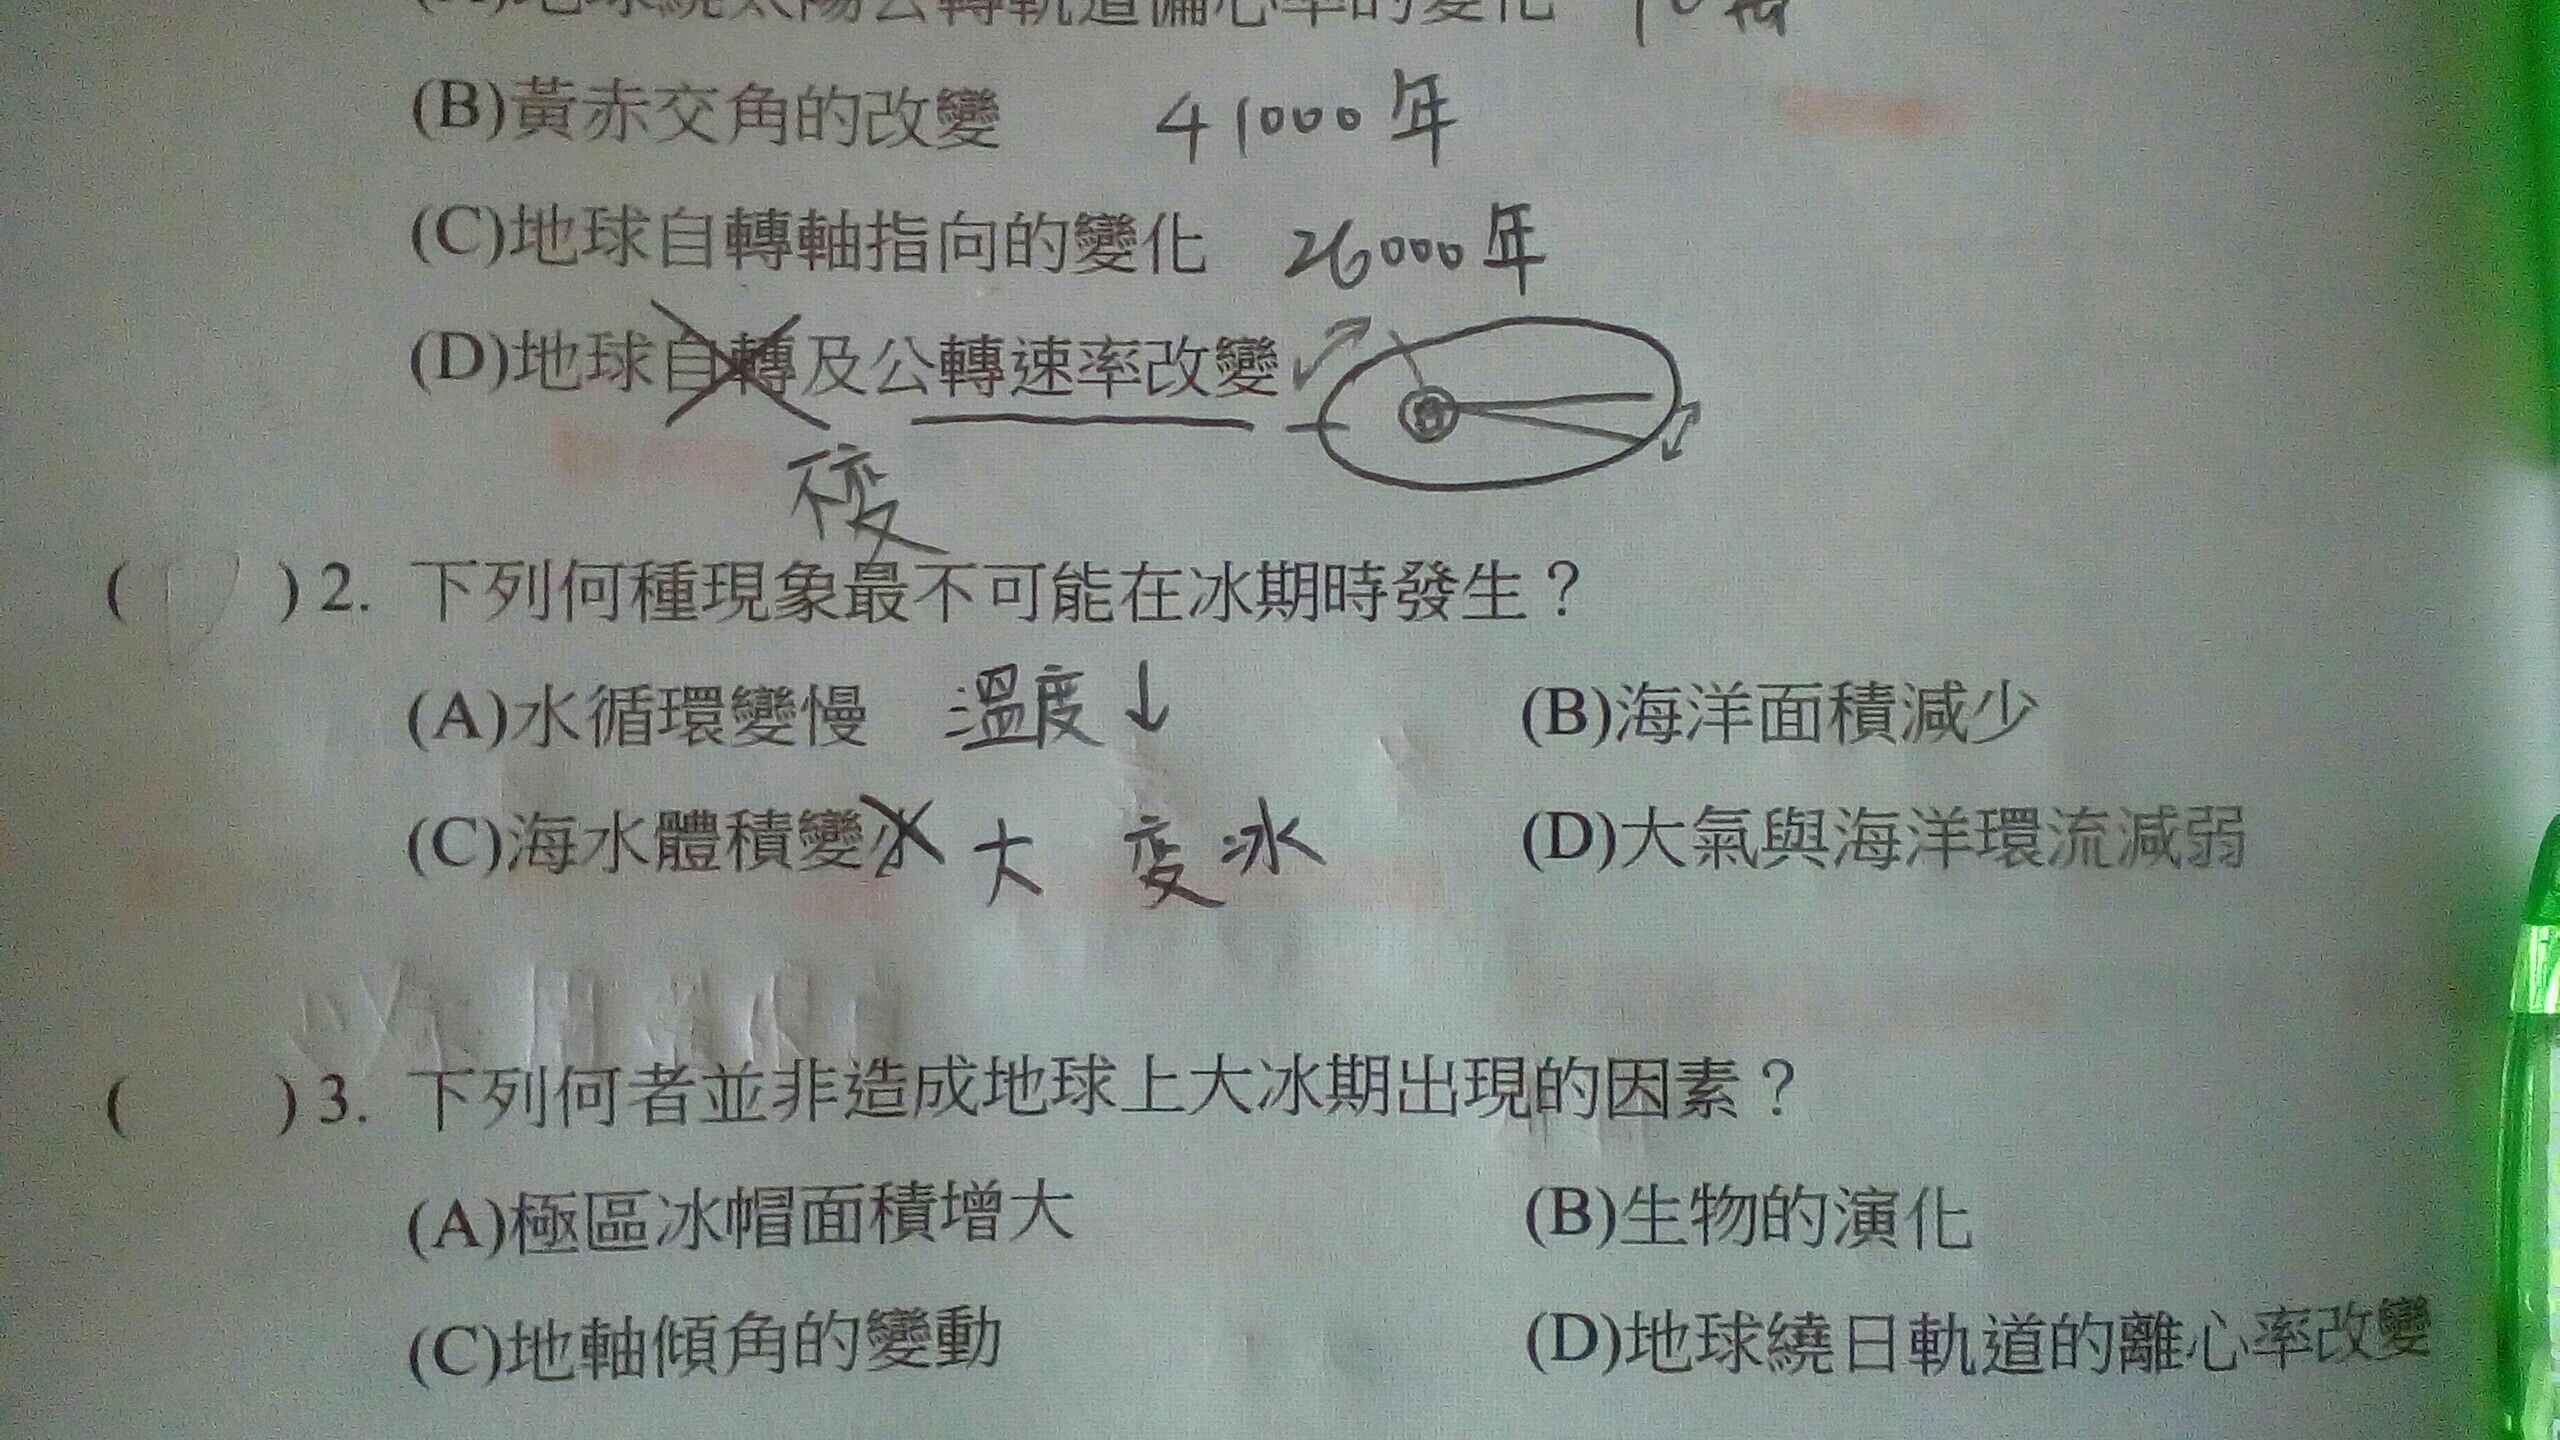 (A)地球繞太陽公轉軌道偏心率的變化 10萬
(B)黃赤交角的改變 41000年
(C)地球自轉軸指向的變化 26000年
(D)地球自轉及公轉速率改變
不変
( D )2. 下列何種現象最不可能在冰期時發生？
(A)水循環變慢 溫度↓ (B)海洋面積減少
(C)海水體積變小 大 変冰 (D)大氣與海洋環流減弱
( )3. 下列何者並非造成地球上大冰期出現的因素？
(A)極區冰帽面積增大 (B)生物的演化
(C)地軸傾角的變動 (D)地球繞日軌道的離心率改變